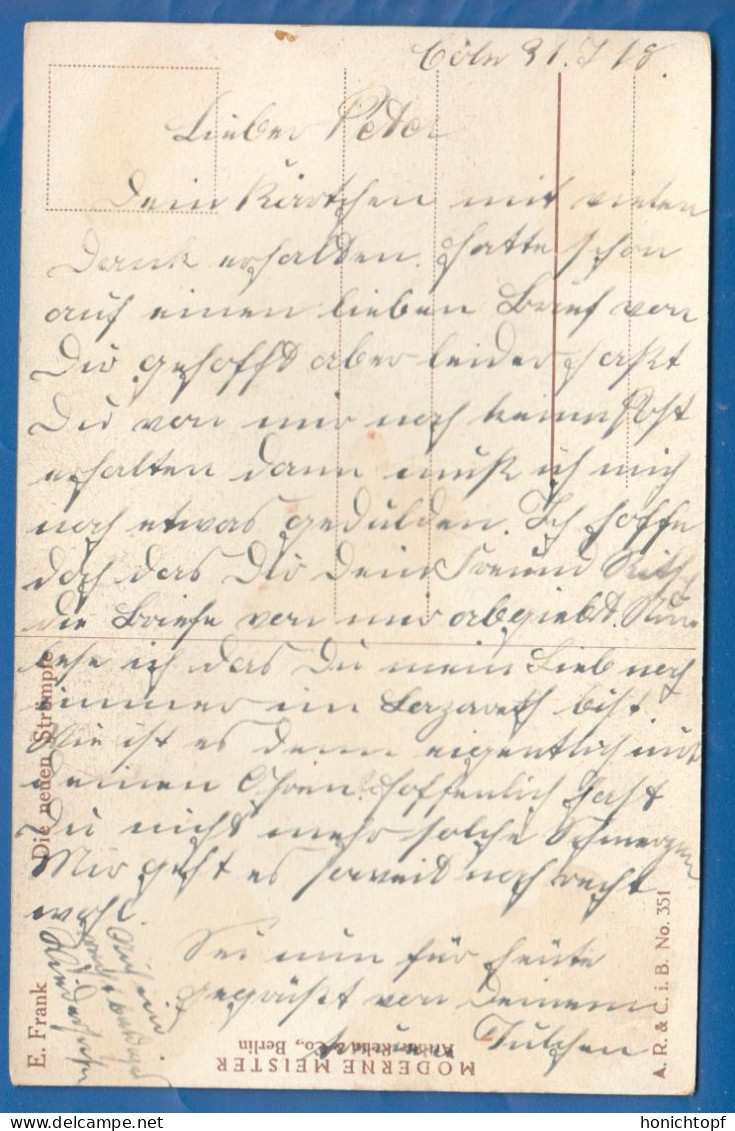 Cöln 31.7.18.
Lieber Peter
Dein Kärtchen mit vielen
Dank erhalten. Hatte schon
auf einen lieben Brief von
Dir gehofft aber leider hast
Du von mir noch keine Post
erhalten dann muß ich mich
noch etwas gedulden. Ich hoffe
doch das Dir Dein Freund
die Briefe von mir abgiebt. Nun
lese ich das Du mein Lieb noch
immer im Lazareth bist.
Wie ist es denn eigentlich mit
Deinen Ohren hoffenlich hast
Du nicht mehr solche Schmerzen
Mir geht es soweit noch recht
wohl.
Sei nun für heute
gegrüßt von Deinem
Julchen
Auf ein
Wiedersehn
E. Frank Die neuen Strümpfe
MODERNE MEISTER
& Co., Berlin
A. R. & C. i. B. No. 351
honichtopf